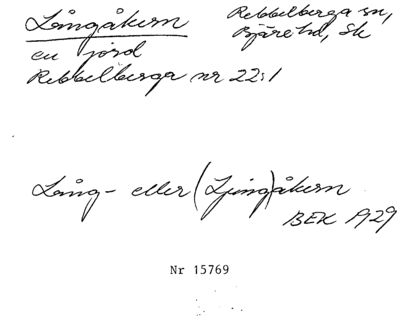 Långåkern
Rebbelberga sn,
Bjäre hd, Sk
en jord
Rebbelberga nr 22:1
Lång- eller (Ljung)åkern
BEK 1929
Nr 15769